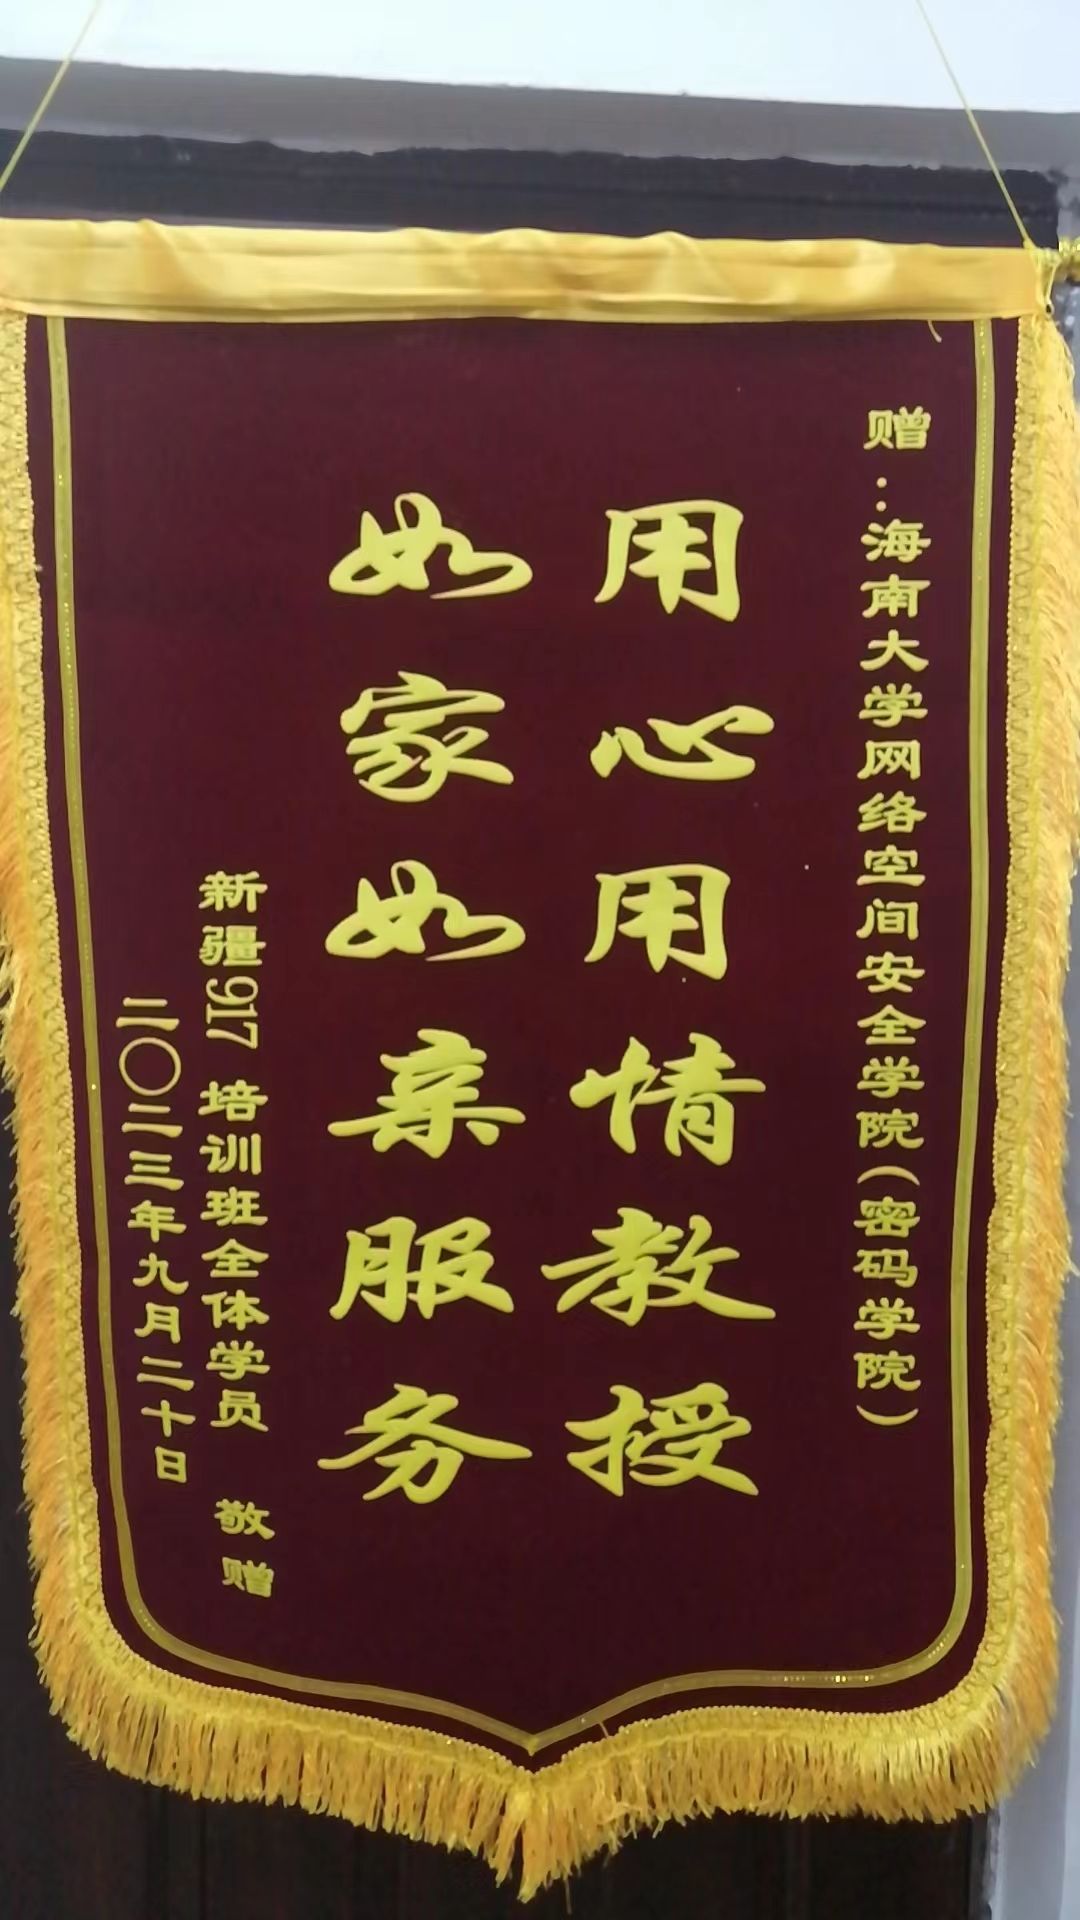 赠：海南大学网络空间安全学院（密码学院）
用心用情教授
如家如亲服务
新疆917 培训班全体学员 敬赠
二〇二三年九月二十日